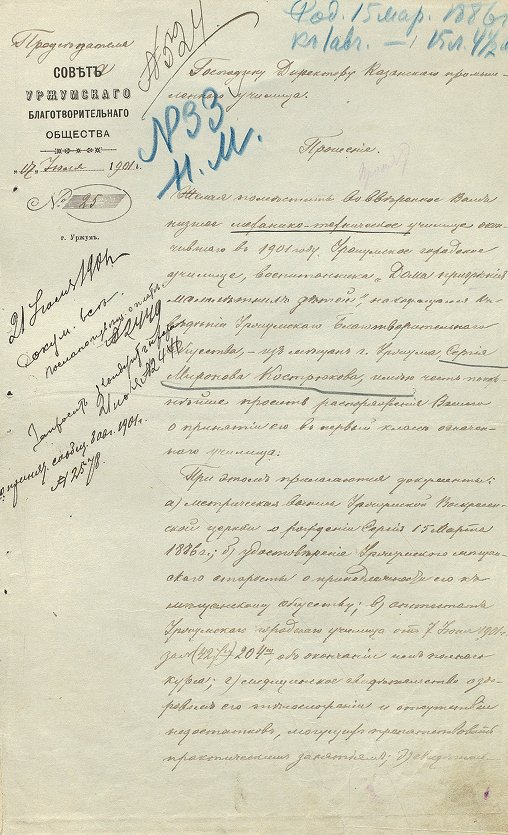 Род. 15 мар. 1886 г.
к 1 авг. — 15 л. 4 1/2 м.
№ 524
Председателя
СОВѢТЪ
УРЖУМСКАГО
БЛАГОТВОРИТЕЛЬНАГО
ОБЩЕСТВА
„17“ Июля 1901 г.
№ 25
г. Уржумъ.
№ 33
Н. М.
Господину Директору Казанскаго промыш-
леннаго училища.
Прошение.
Желая помѣстить во ввѣренное Вамъ
низшее механико-техническое училище окон-
чившаго въ 1901 году Уржумское городское
училище, воспитанника „Дома призрѣнія
малолѣтнихъ дѣтей“, находящагося въ
вѣдѣніи Уржумскаго Благотворительнаго
Общества, — изъ мѣщанъ г. Уржума, Сергѣя
Миронова Кострикова, имѣю честь покор-
нѣйше просить распоряженія Вашего
о принятіи его въ первый классъ означен-
наго училища.
При этомъ прилагаются документы:
а) метрическая выпись Уржумской Воскресен-
ской церкви о рожденіи Сергѣя 15 Марта
1886 г.; б) удостовѣреніе Уржумскаго мѣщан-
скаго старосты о принадлежности его къ
мѣщанскому обществу; в) аттестатъ
Уржумскаго городскаго училища отъ 7 Июня 1901 г.
за № 204, объ окончаніи имъ полнаго
курса; г) медицинское свидѣтельство о здо-
ровомъ его тѣлосложеніи и отсутствіи
недостатковъ, могущихъ препятствовать
практическимъ занятіямъ;
21 Июля 1901 г.
Докум. есть.
№ 2449
21 июля № 2449
сообщ. 8 авг. 1901 г.
№ 2578